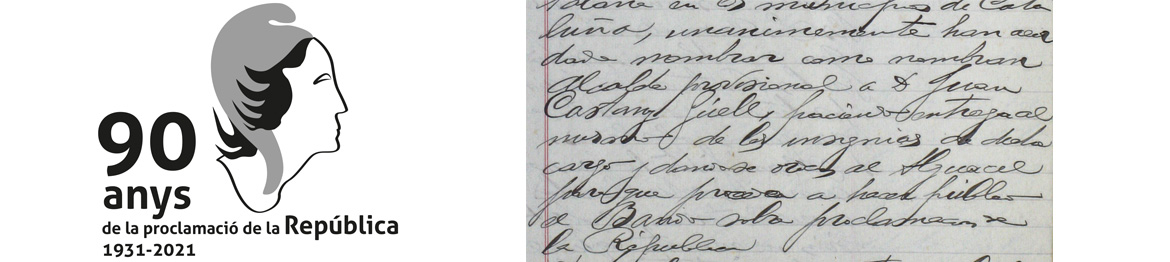 90
anys
de la proclamació de la República
1931-2021
de Cata
luña, unanimemente han acor
dado nombrar como nombran
Alcalde provisional a D Juan
Castany Güell, haciendo entrega al
mismo de las insignias de dicho
cargo y dandose orden al Alguacil
para que proceda a hacer público
el Bando sobre proclamacion de
la República